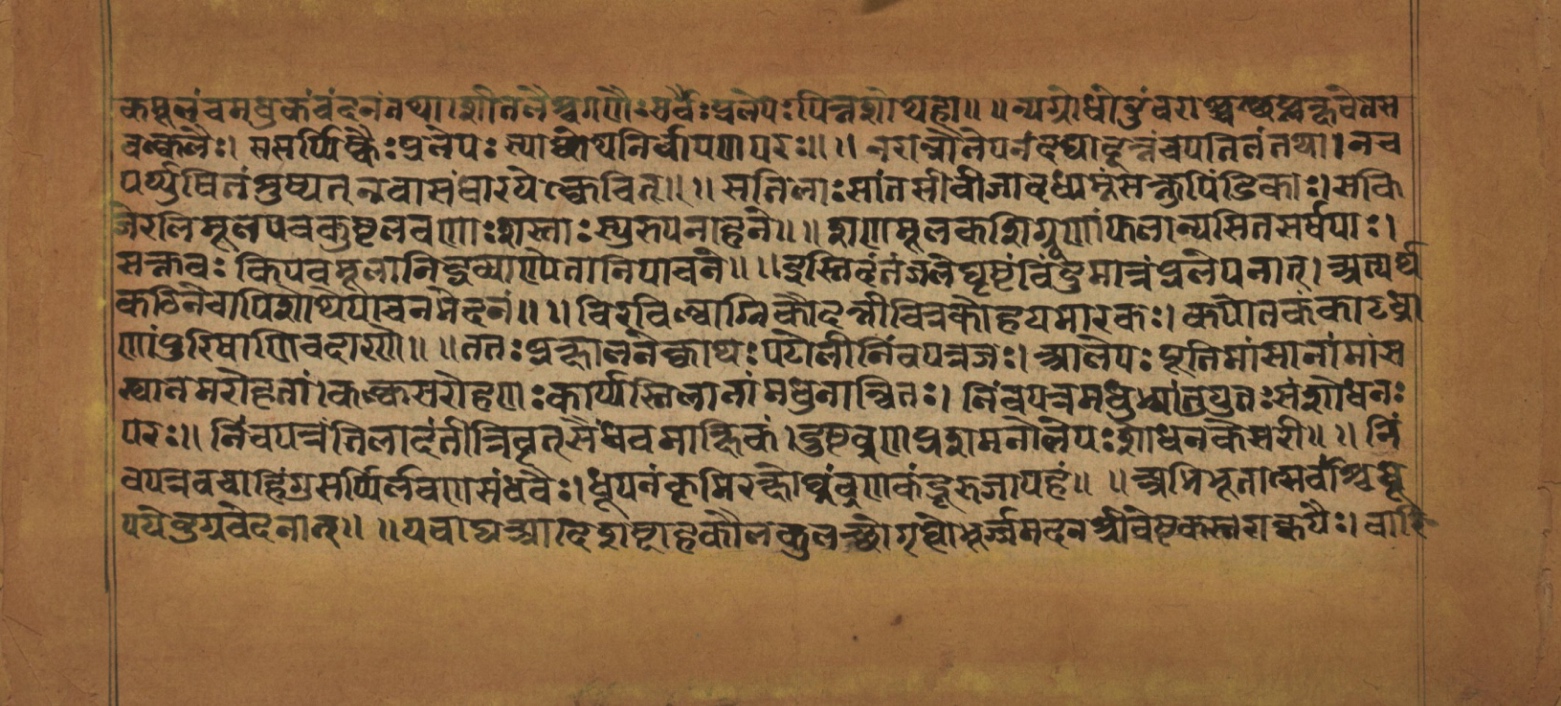 कमूलं च मधुकं चंदनं तथा । शीतलैश्च गणैः सर्वैः प्रलेपः पित्तशोथहा ॥ ॥ न्यग्रोधोडुंबराश्वत्थप्लक्षवेतस
वल्कलैः । ससर्पिष्कैः प्रलेपः स्याच्छोथनिर्वापणपरः ॥ ॥ न रात्रौ लेपनं दद्याद्दत्तं च पतितं तथा । न च
पर्य्युषितं शुष्यत् नैवासंधारयेत्क्वचित् ॥ ॥ सतिलाः सांतसीवीजा वदध्यम्लं सक्तुपिंडिकाः । सकि
जिरलिमूलपवकुष्टलवणाः शस्ताः स्युरुपनाहने ॥ ॥ शणमूलकशिग्रूणां फलान्यसितसर्षपाः ।
सक्तवः किपवमूलानि द्रव्याण्येतानि पाचने ॥ ॥ हस्तिदंतं जले घृष्टं विंदुमात्रं प्रलेपनात् । अत्यर्थ
कठिने चापि शोथे पाचनभेदनं ॥ ॥ चिरविल्वाग्निकौ दन्तीचित्रकौ हयमारकः । कपोतकंकगृध्रा
णां पुरिषाणि च दारणे ॥ ॥ ततः प्रक्षालने क्वाथः पटोलीनिंवपत्रजः । आलेपः पूतिमांसानां मांस
स्थानमरोहतां । कल्कसरोहणः कार्य्यस्तिलानां मधुनान्वितः । निंवपत्रमधुभ्यां तु युतः संशोधनः
परः ॥ निंवपत्रं तिला दंती त्रिवृत् सैंधवमाक्षिकं । दुष्टव्रणप्रशमनो लेपः शोधनकेसरी ॥ ॥ निं
वपत्रवचाहिंगुसर्पिर्लवणसंधवैः । धूपनं कृमिरक्षोघ्नं व्रणकंडूरुजापहं ॥ ॥ अभिभूतात्सर्वांश्च धू
पयेदुग्रवेदनात् ॥ ॥